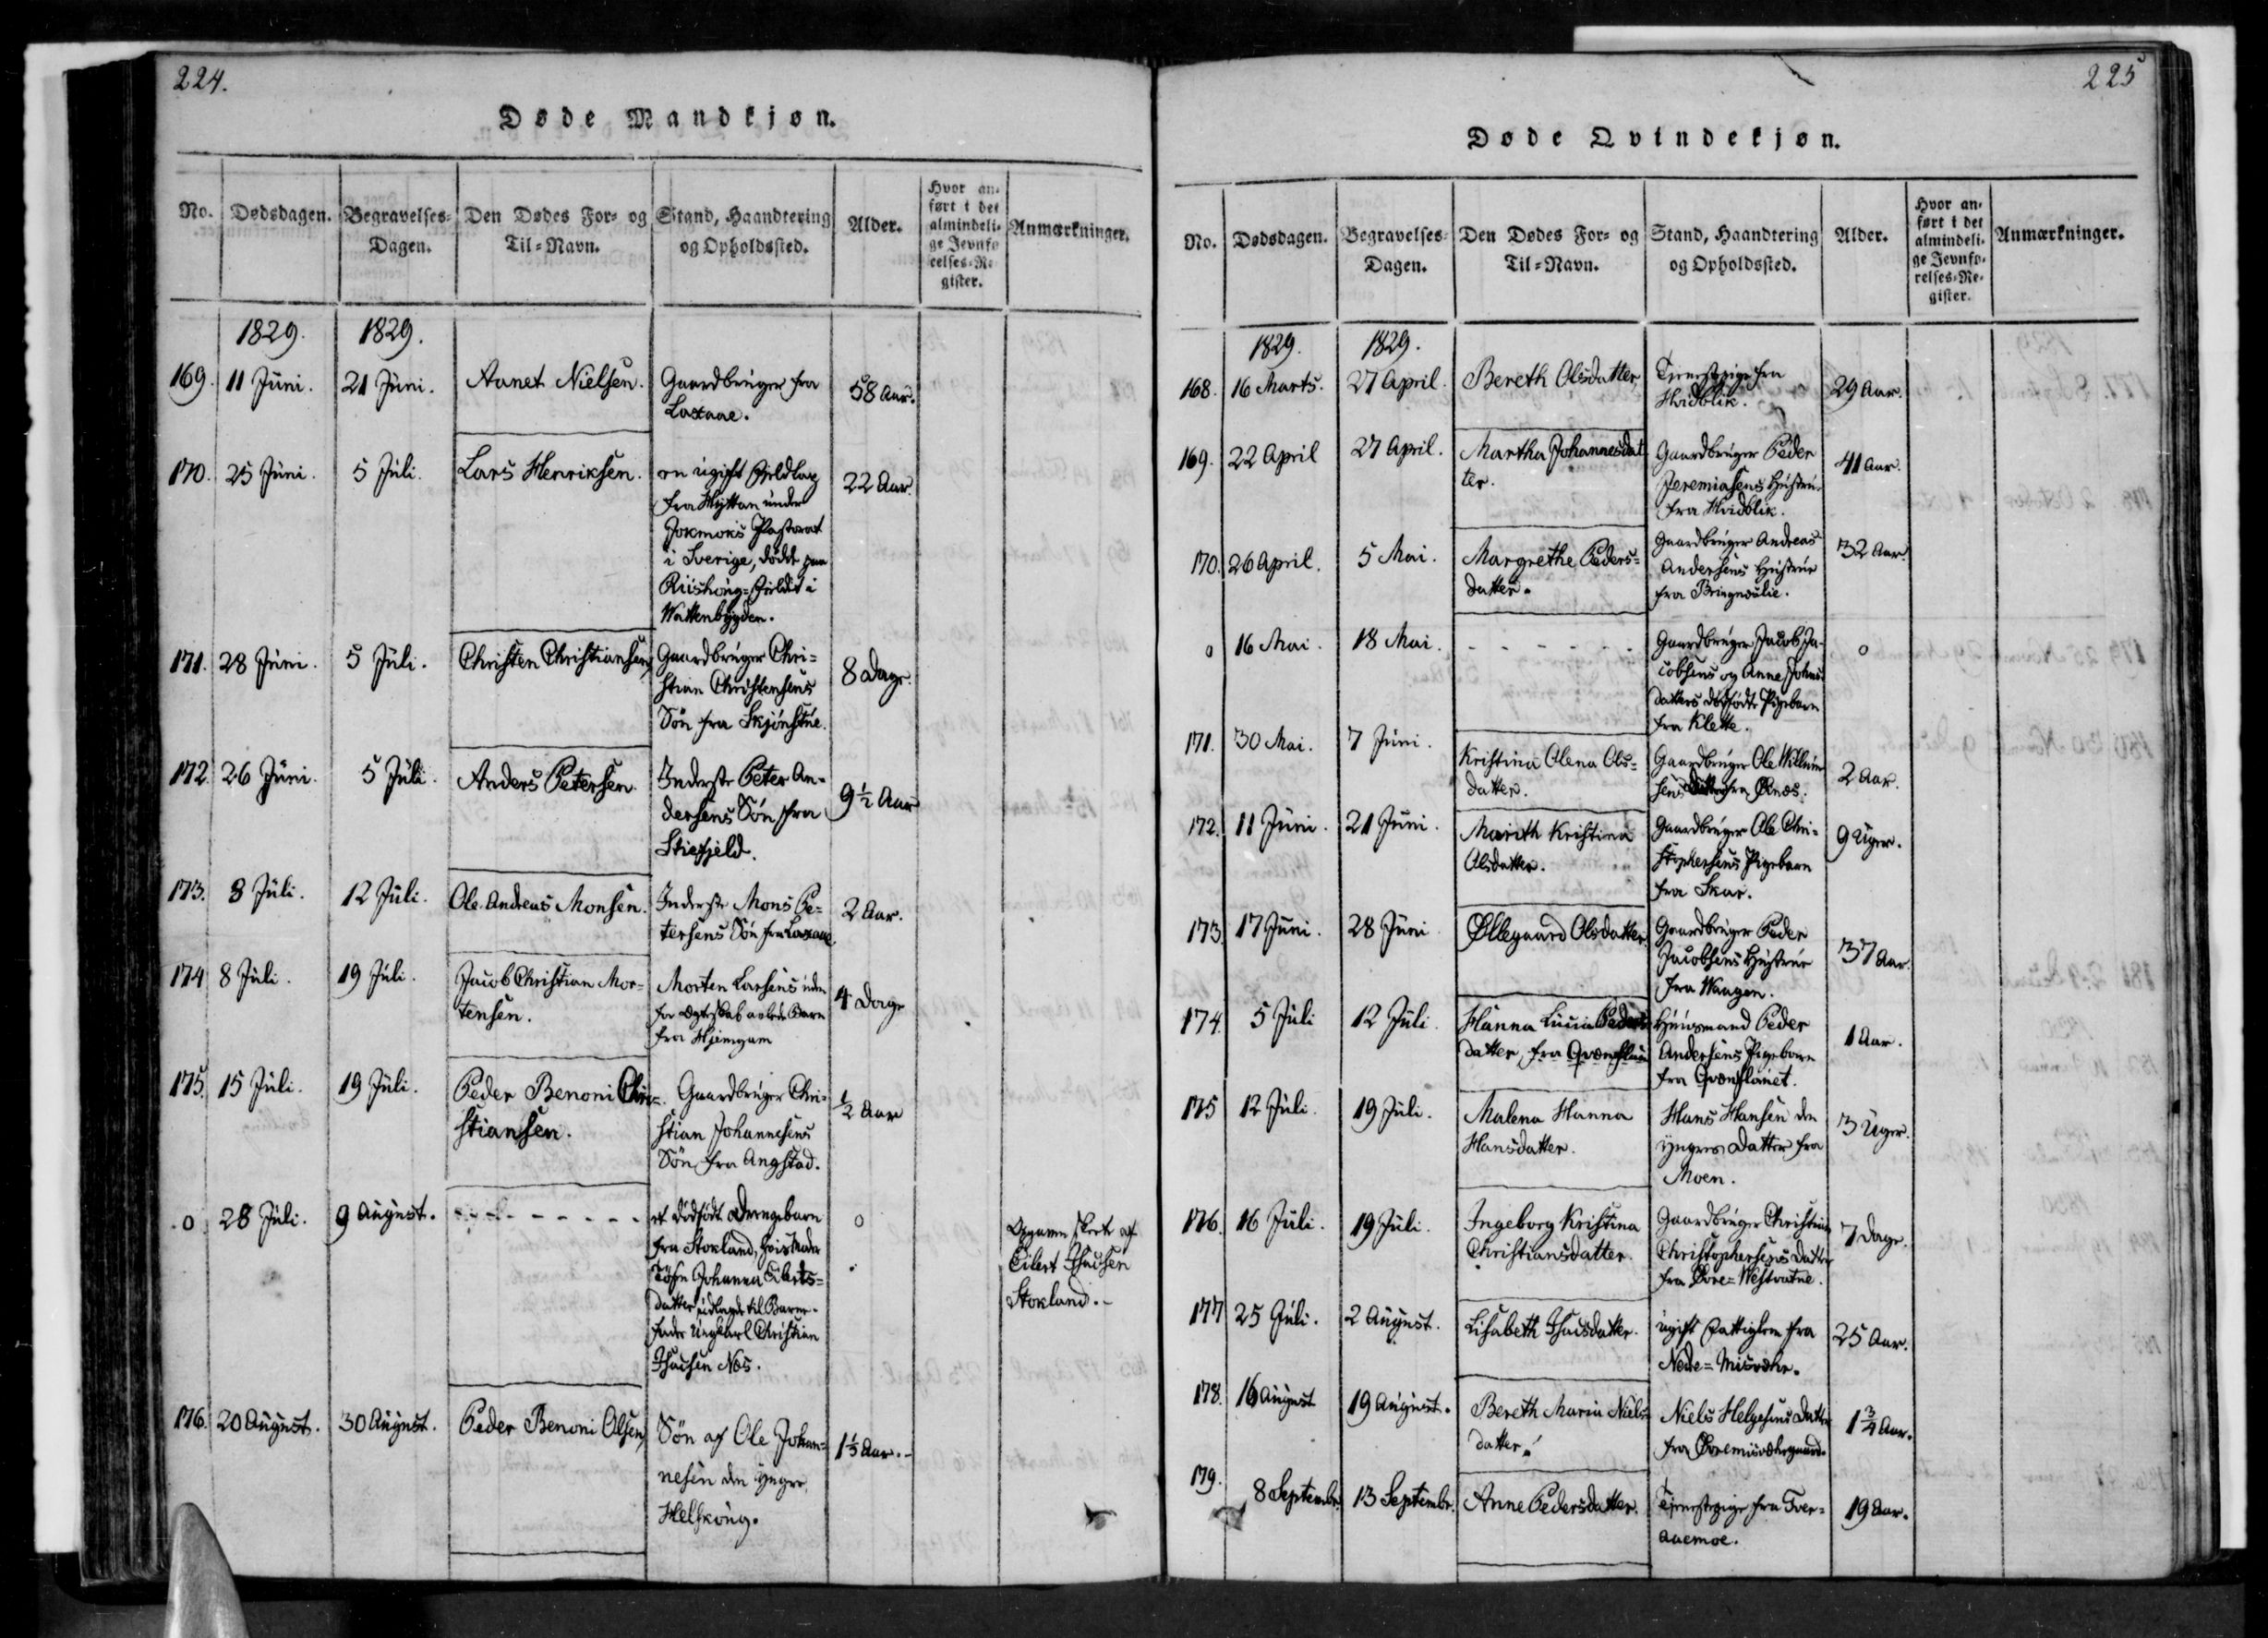 224.
Døde Mandkjøn.
No.
Dødsdagen.
Begravelses-
Dagen.
Den Dødes For- og
Til-Navn.
Stand, Haandtering
og Opholdssted.
Alder.
Hvor an-
ført i det
almindeli-
ge Jevnfø
relses-Re
gister.
Anmærkninger.
1829. 1829.
169. 11 Juni. 21 Juni. Aanet Nielsen.
Gaardbruger fra
Laxaae.
58 Aar.
170. 25 Juni. 5 Juli. Lars Henriksen.
en ugift Fieldlap
fra Hyttan under
Jokmoks Pastorat
i Sverige, døde paa
Riishoug-Fieldet i
Wattenbygden.
22 Aar.
171. 28 Juni. 5 Juli. Christen Christiansen,
Gaardbruger Chri=
stian Christensens
Søn fra Skjønstue.
8 Dage.
172. 26 Juni. 5 Juli. Anders Petersen.
Inderste Peter An=
dersens Søn fra
9½ Aar
173. 8 Juli. 12 Juli. Ole Andreas Monsen.
Inderste Mons Pe=
tersens Søn fra Laxaae.
2 Aar.
174 8 Juli. 19 Juli. Jacob Christian Mor=
tensen.
Morten Larsens uden
for Ægteskab avlede Barn
fra Hjemgam
4 Dage
175. 15 Juli. 19 Juli. Peder Benoni Chri=
stiansen.
Gaardbruger Chri=
stian Johannesens
Søn fra Angstad.
½ Aar
o 28 Juli. 9 August. - - - - - - - -
et dødfødt Drengebarn
fra Stokland, hvis Moder
Johanna Eilerts=
datter udlagde til Barne-
fader Ungkarl Christian
Isachsen Næs.
o
Eilert Isachsen
Stokland.-
176. 20 August. 30 August. Peder Benoni Olsen,
Søn af Ole Johan=
nesen den yngre,
Helskoug.
1⅓ Aar.-
225
Døde Qvindekjøn.
No.
Dødsdagen.
Begravelses-
Dagen.
Den Dødes For- og
Til-Navn.
Stand, Haandtering
og Opholdssted.
Alder.
Hvor an-
ført i det
almindeli-
ge Jevnfø-
relses-Re-
gister.
Anmærkninger.
1829. 1829.
168. 16 Marts. 27 April. Bereth Olsdatter
Tjenestpige fra
Hvidblik.
29 Aar.
169. 22 April 27 April. Martha Johannesdat
ter.
Gaardbruger Peder
Jeremiasens Hustrue
fra Hvidblik.
41 Aar.
170. 26 April. 5 Mai. Margrethe Peders=
datter.
Gaardbruger Andreas
Andersens Hustrue
fra Bringeslie.
32 Aar.
o 16 Mai. 18 Mai. - - - - - -
Gaardbruger Jacob Ja-
cobsens og Anne Johns
datters dødfødte Pigebarn
fra Klette.
o
171. 30 Mai. 7 Juni. Kristina Olena Ols=
datter.
Gaardbruger Ole Willum
sens Datter fra Øines.
2 Aar.
172. 11 Juni. 21 Juni. Marith Kristina
Olsdatter.
Gaardbruger Ole Chri=
stophersens Pigebarn
fra Skar.
9 Uger.
173. 17 Juni. 28 Juni Øllegaard Olsdatter.
Gaardbruger Peder
Jacobsens Hustrue
fra Waagen.
37 Aar.
174. 5 Juli 12 Juli. Hanna Lucia Peders
datter, fra Qvænflaaet
Huusmand Peder
Andersens Pigebarn
fra Qvænflaaet.
1 Aar.
175 12 Juli. 19 Juli. Malena Hanna
Hansdatter.
Hans Hansen den
yngres Datter fra
Moen.
3 Uger.
176. 16 Juli. 19 Juli. Ingeborg Kristina
Christiansdatter.
Gaardbruger Christian
Christophersens Datter
fra Øvre-Westvatne.
7 Dage.
177 25 Juli. 2 August. Lisabeth Isacsdatter.
ugift Fattiglem fra
Nedre=Misvær.
25 Aar.
178. 16 August 19 August. Bereth Maria Niels
datter.
Niels Helgesens Datter
fra Øvremisværgaard.
1¾ Aar.
179. 8 Septembr. 13 Septembr. Anne Pedersdatter.
Tjenestpige fra Tver=
aaemoe.
19 Aar.